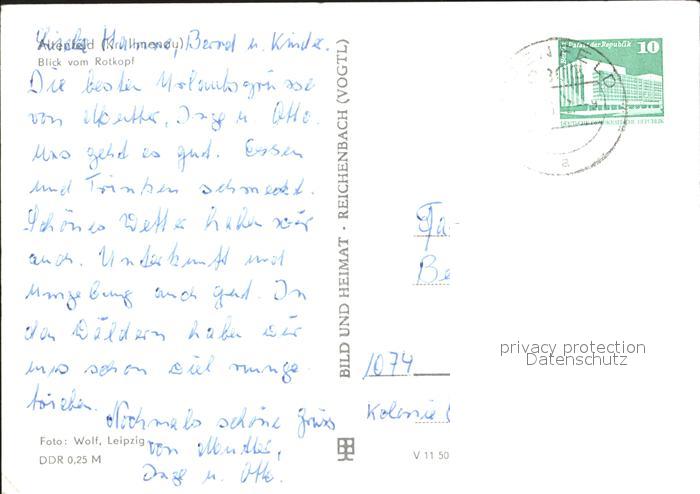 Altenfeld (Kr. Ilmenau)
Blick vom Rotkopf
Liebe Hanna, Bernd u. Kinder.
Die besten Urlaubsgrüsse
von Mutter, Inge u. Otto.
Uns geht es gut. Essen
und Trinken schmeckt.
Schönes Wetter haben wir
auch. Unterkunft und
Umgebung auch gut. In
den Wäldern haben wir
uns schon viel rumge-
trieben.
Nochmals schöne Grüsse
von Mutter,
Inge u. Otto.
Foto: Wolf, Leipzig
DDR 0,25 M
BILD UND HEIMAT · REICHENBACH (VOGTL)
V 11 50
Palast der Republik 10
DEUTSCHE DEMOKRATISCHE REPUBLIK
a
Fa
Be
1074
Kolonie
privacy protection
Datenschutz